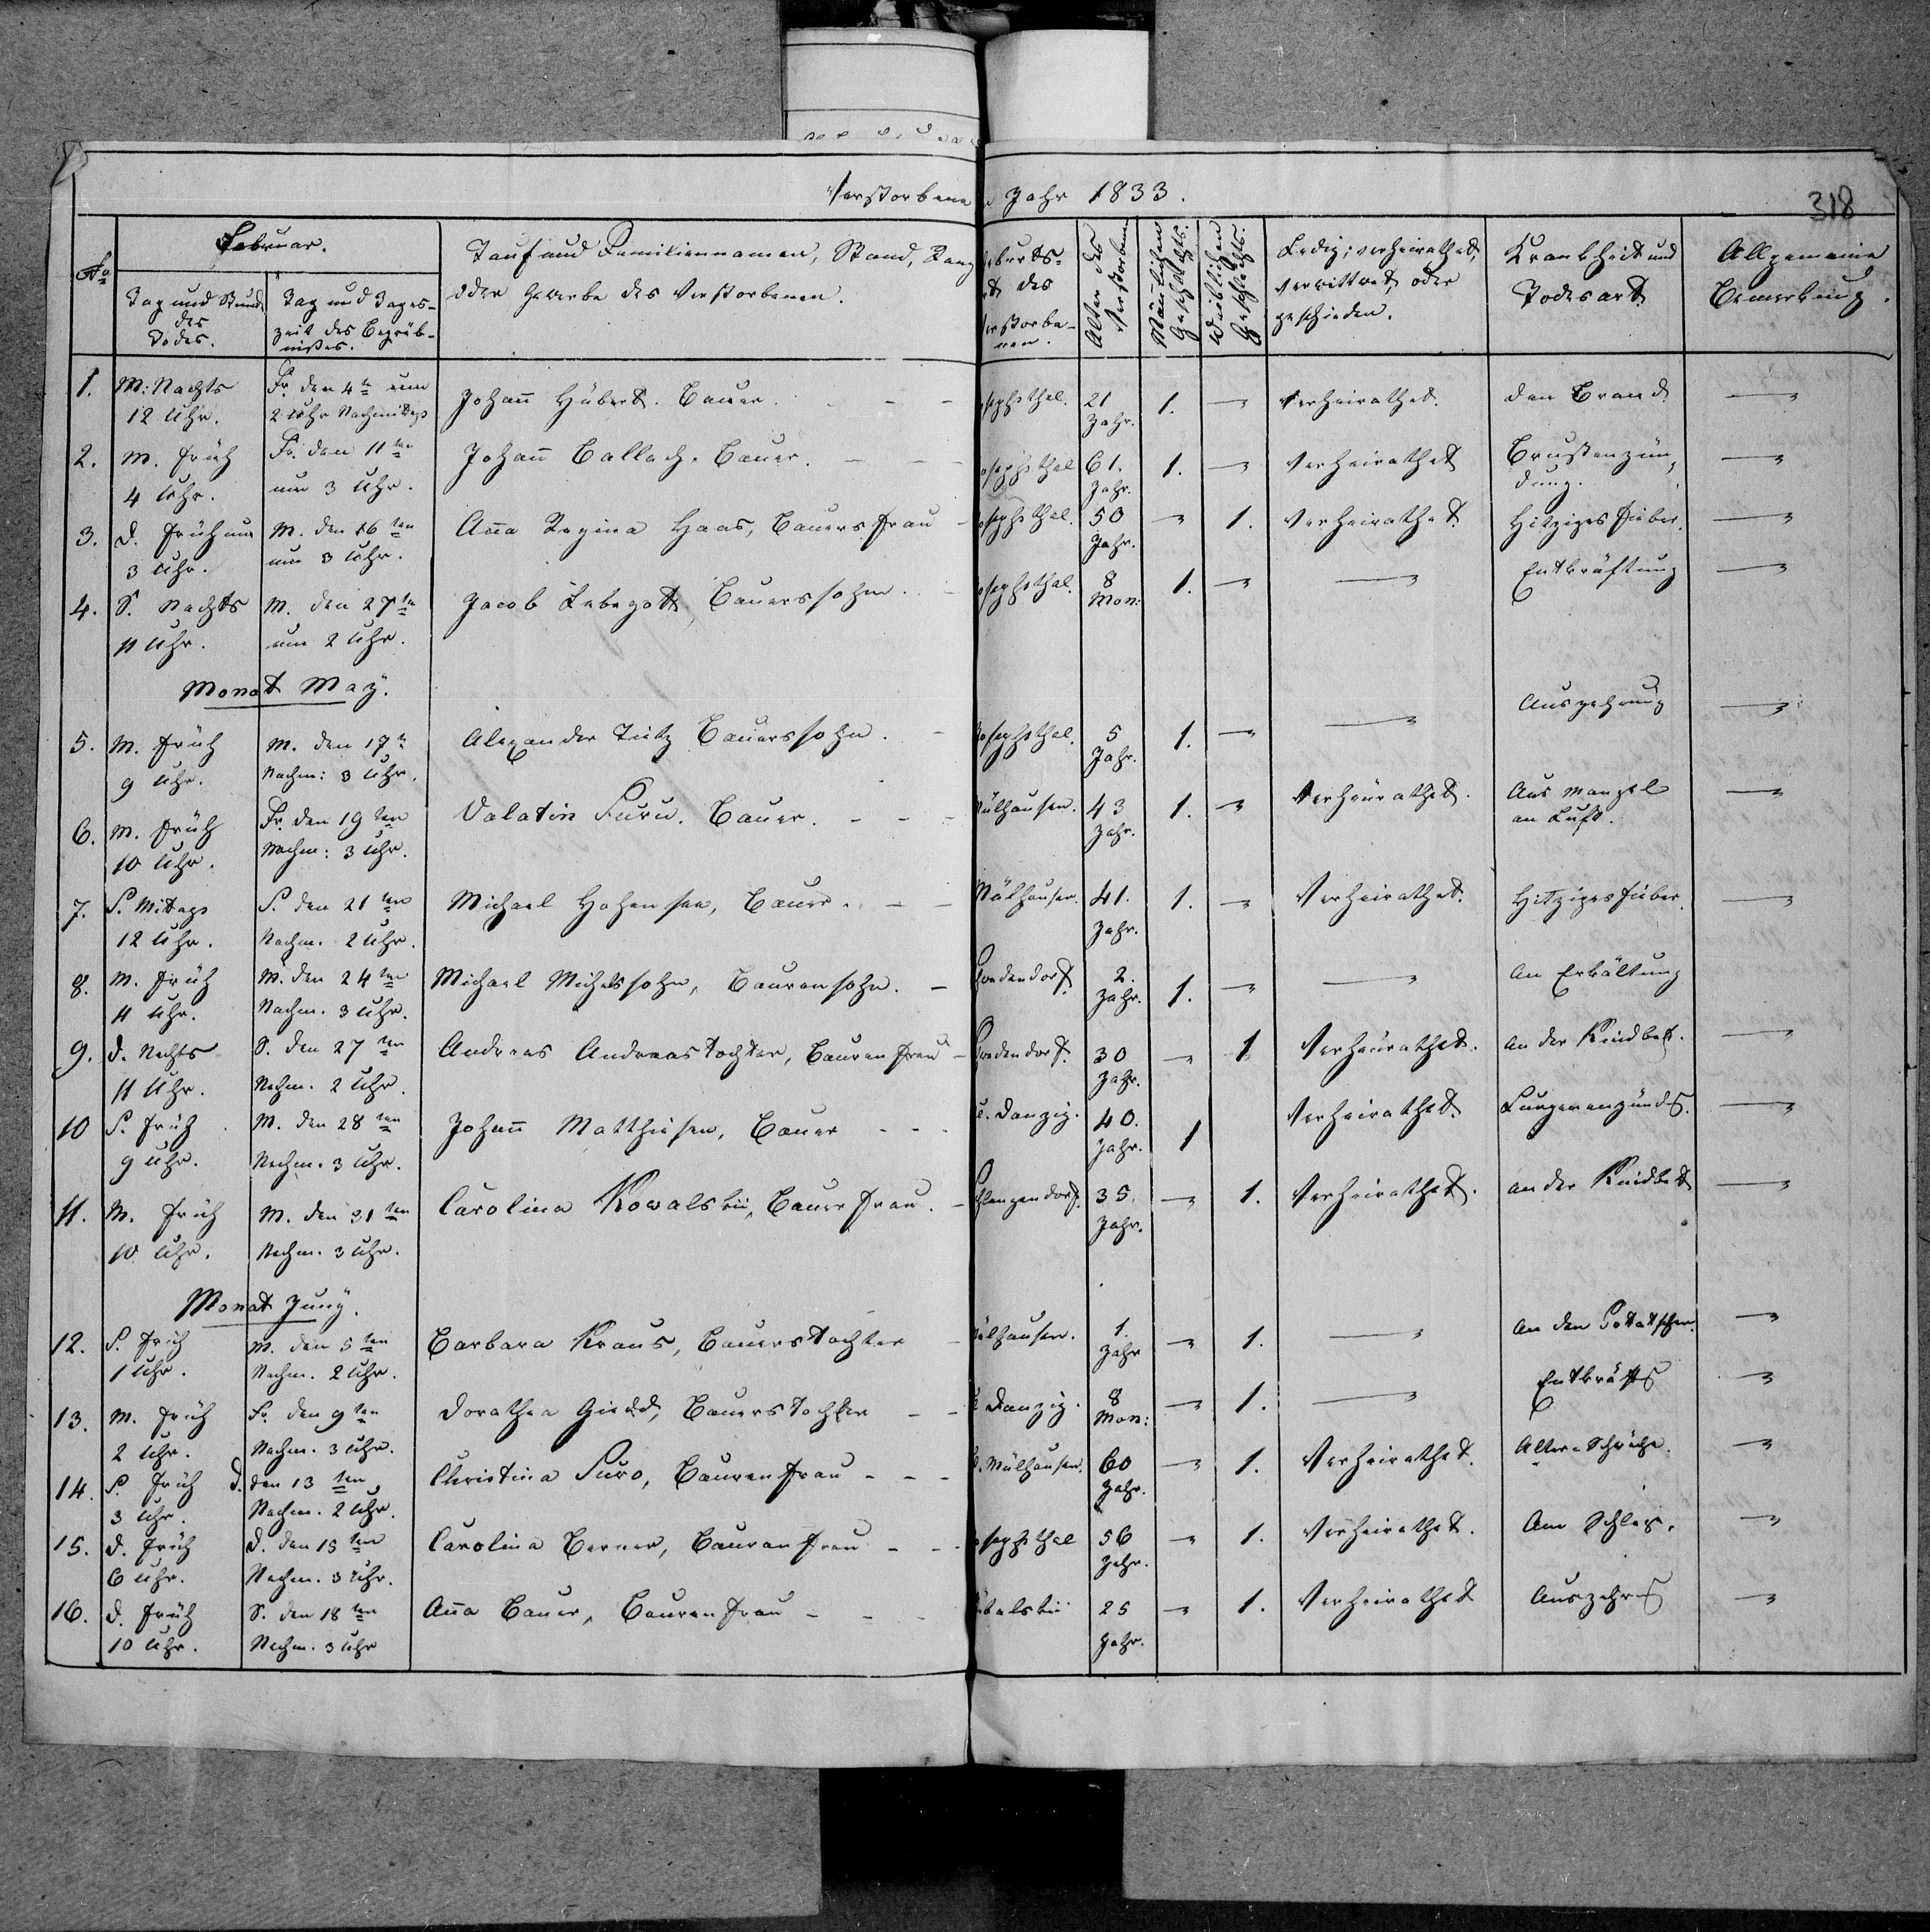 Verstorbene Jahr 1833.
318
No
Februar.
Tag und Stunde des Todes.
Tag und Tages-zeit des Begräb-nißes.
Tauf und Familiennamen, Stand, Rang
oder Gewerbe des Verstorbenen.
Geburts-ort des Verstorbe-nen.
Alter des Verstorbenen
Mänlichen Geschlechts.
Weiblichen Geschlechts.
Ledig; verheirathet, verwittwet, oder geschieden.
Krankheit und Todesart.
Allgemeine Bemerkung.
1. M: Nachts Fr. den 4t um Johan̅ Hübert. Bauer. - - - osephsthal. 21 1. — Verheirathet. den Brand. —
12 Uhr. 2 Uhr Nachmittags Jahr.
2. M. Früh Fr. den 11ten Johan̅ Ballach. Bauer. - - - osephsthal 61. 1. — Verheirathet Brustenzün- —
4 Uhr. um 3 Uhr. Jahr. dung.
3. D. Früh um M. den 16ten An̅a Regina Haas, Bauers Frau - osephsthal. 50 — 1. Verheirathet. Hitziges Fieber. —
3 Uhr. um 3 Uhr. Jahr.
4. S. Nachts M. den 27tn Jacob Lebegott, Bauerssohn. - osephsthal. 8 1. — — Entkräftung —
11 Uhr. um 2 Uhr. Mon:
Monat May.
5. M. Früh M. den 17t Alexander Tietz Bauerssohn. - osephsthal. 5 1. — — Auszehrung —
9 Uhr. Nachm: 3 Uhr. Jahr.
6. M. Früh Fr. den 19ten Valatin Furu. Bauer. - - - ülhausen. 43 1. — Verheurathet. Aus Mangel —
10 Uhr. Nachm: 3 Uhr. Jahr. an Luft.
7. S. Mittags S. den 21ten Michael Hohensee, Bauer. - - Mülhausen. 41. 1. — Verheirathet. Hitziges Fieber. —
12 Uhr. Nachm. 2 Uhr. Jahr.
8. M. Früh M. den 24ten Michael Michelssohn, Bauren sohn. - 2. 1. — — An Erkältung
11 Uhr. Nachm. 3 Uhr. Jahr.
9. D. Nachts S. den 27ten Andreas Andreastochter, Bauren frau - 30 — 1 Verheurathet. an der Kindbett. —
11 Uhr. Nachm. 2 Uhr. Jahr.
10 S. Früh M. den 28ten Johan̅ Matthiesen, Bauer - - - Danzig. 40. 1 Verheirathet. Lungenenzünd. —
9 Uhr. Nachm. 3 Uhr. Jahr.
11. M. Früh M. den 31ten Carolina Kowalskii, Bauer frau. - chlangendorf. 35. — 1. Verheirathet. an der Kindbett —
10 Uhr. Nachm. 3 Uhr. Jahr.
Monat Juny.
12. S. Früh M. den 5ten Barbara Kraus, Bauerstochter - ülhausen. 1. — 1. — An den —
1 Uhr. Nachm. 2 Uhr. Jahr
13. M. Früh Fr. den 9ten Dorothea Giedd, Bauerstochter - - Danzig. 8 — 1. — Entkräft. —
2 Uhr. Nachm. 3 Uhr. Mon:
14. S. Früh D. den 13ten Christina Furo, Bauren frau - - - Mülhausen. 60 — 1. Verheirathet. Alter-Schwäche. —
3 Uhr. Nachm. 2 Uhr. Jahr.
15. D. Früh D. den 15ten Carolina Berner, Bauren frau - - - osephsthal 56 — 1. Verheirathet. Am Schlag. —
6 Uhr. Nachm. 3 Uhr. Jahr.
16. D. Früh S. den 18ten An̅a Bauer, Bauren frau - - - 25 — 1. Verheirathet Auszehr —
10 Uhr. Nachm. 3 Uhr Jahr.